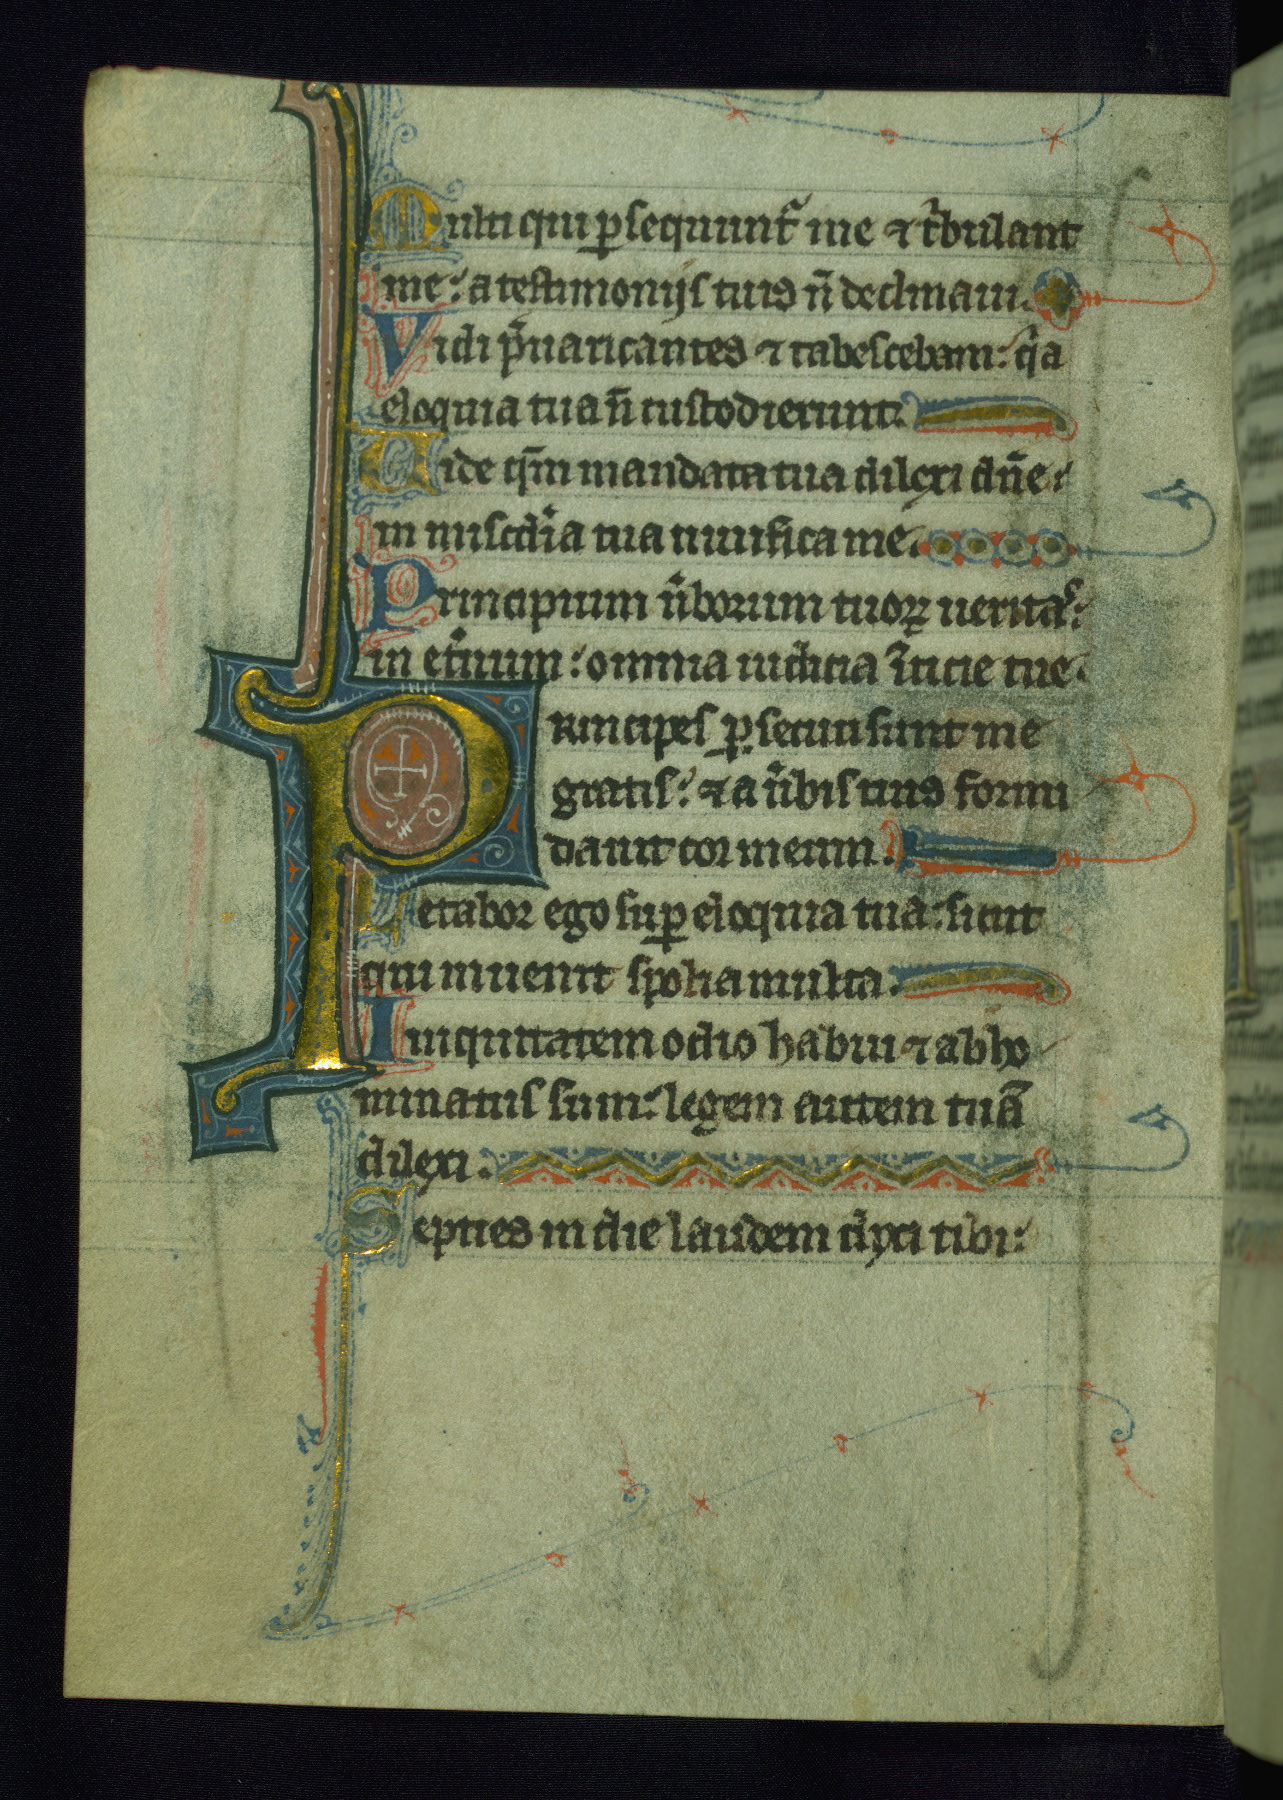 Multi qui p̱sequunt᷑ me ⁊ t͛bulant
me: a testimonijs tuis n̄ declinaui.
Vidi p̄uaricantes ⁊ tabescebam: qͥa
eloquia tua n̄ custodierunt.
Uide qm̄ mandata tua dilexi dn̄e:
in misc̄dia tua uiuifica me.
Principium u͛borum tuoꝝ ueritas:
in et͛num: omnia iudicia iu̾ticie tue.
Principes ꝑsecuti sunt me
gratis: ⁊ a u͛bis tuis formi
dauit cor meum.
Letabor ego suꝑ eloquia tua: sicut
qui inuenit spolia multa.
Iniquitatem odio habui ⁊ abho
minatus sum: legem autem tuā
dilexi.
Septies in die laudem dixi tibi: